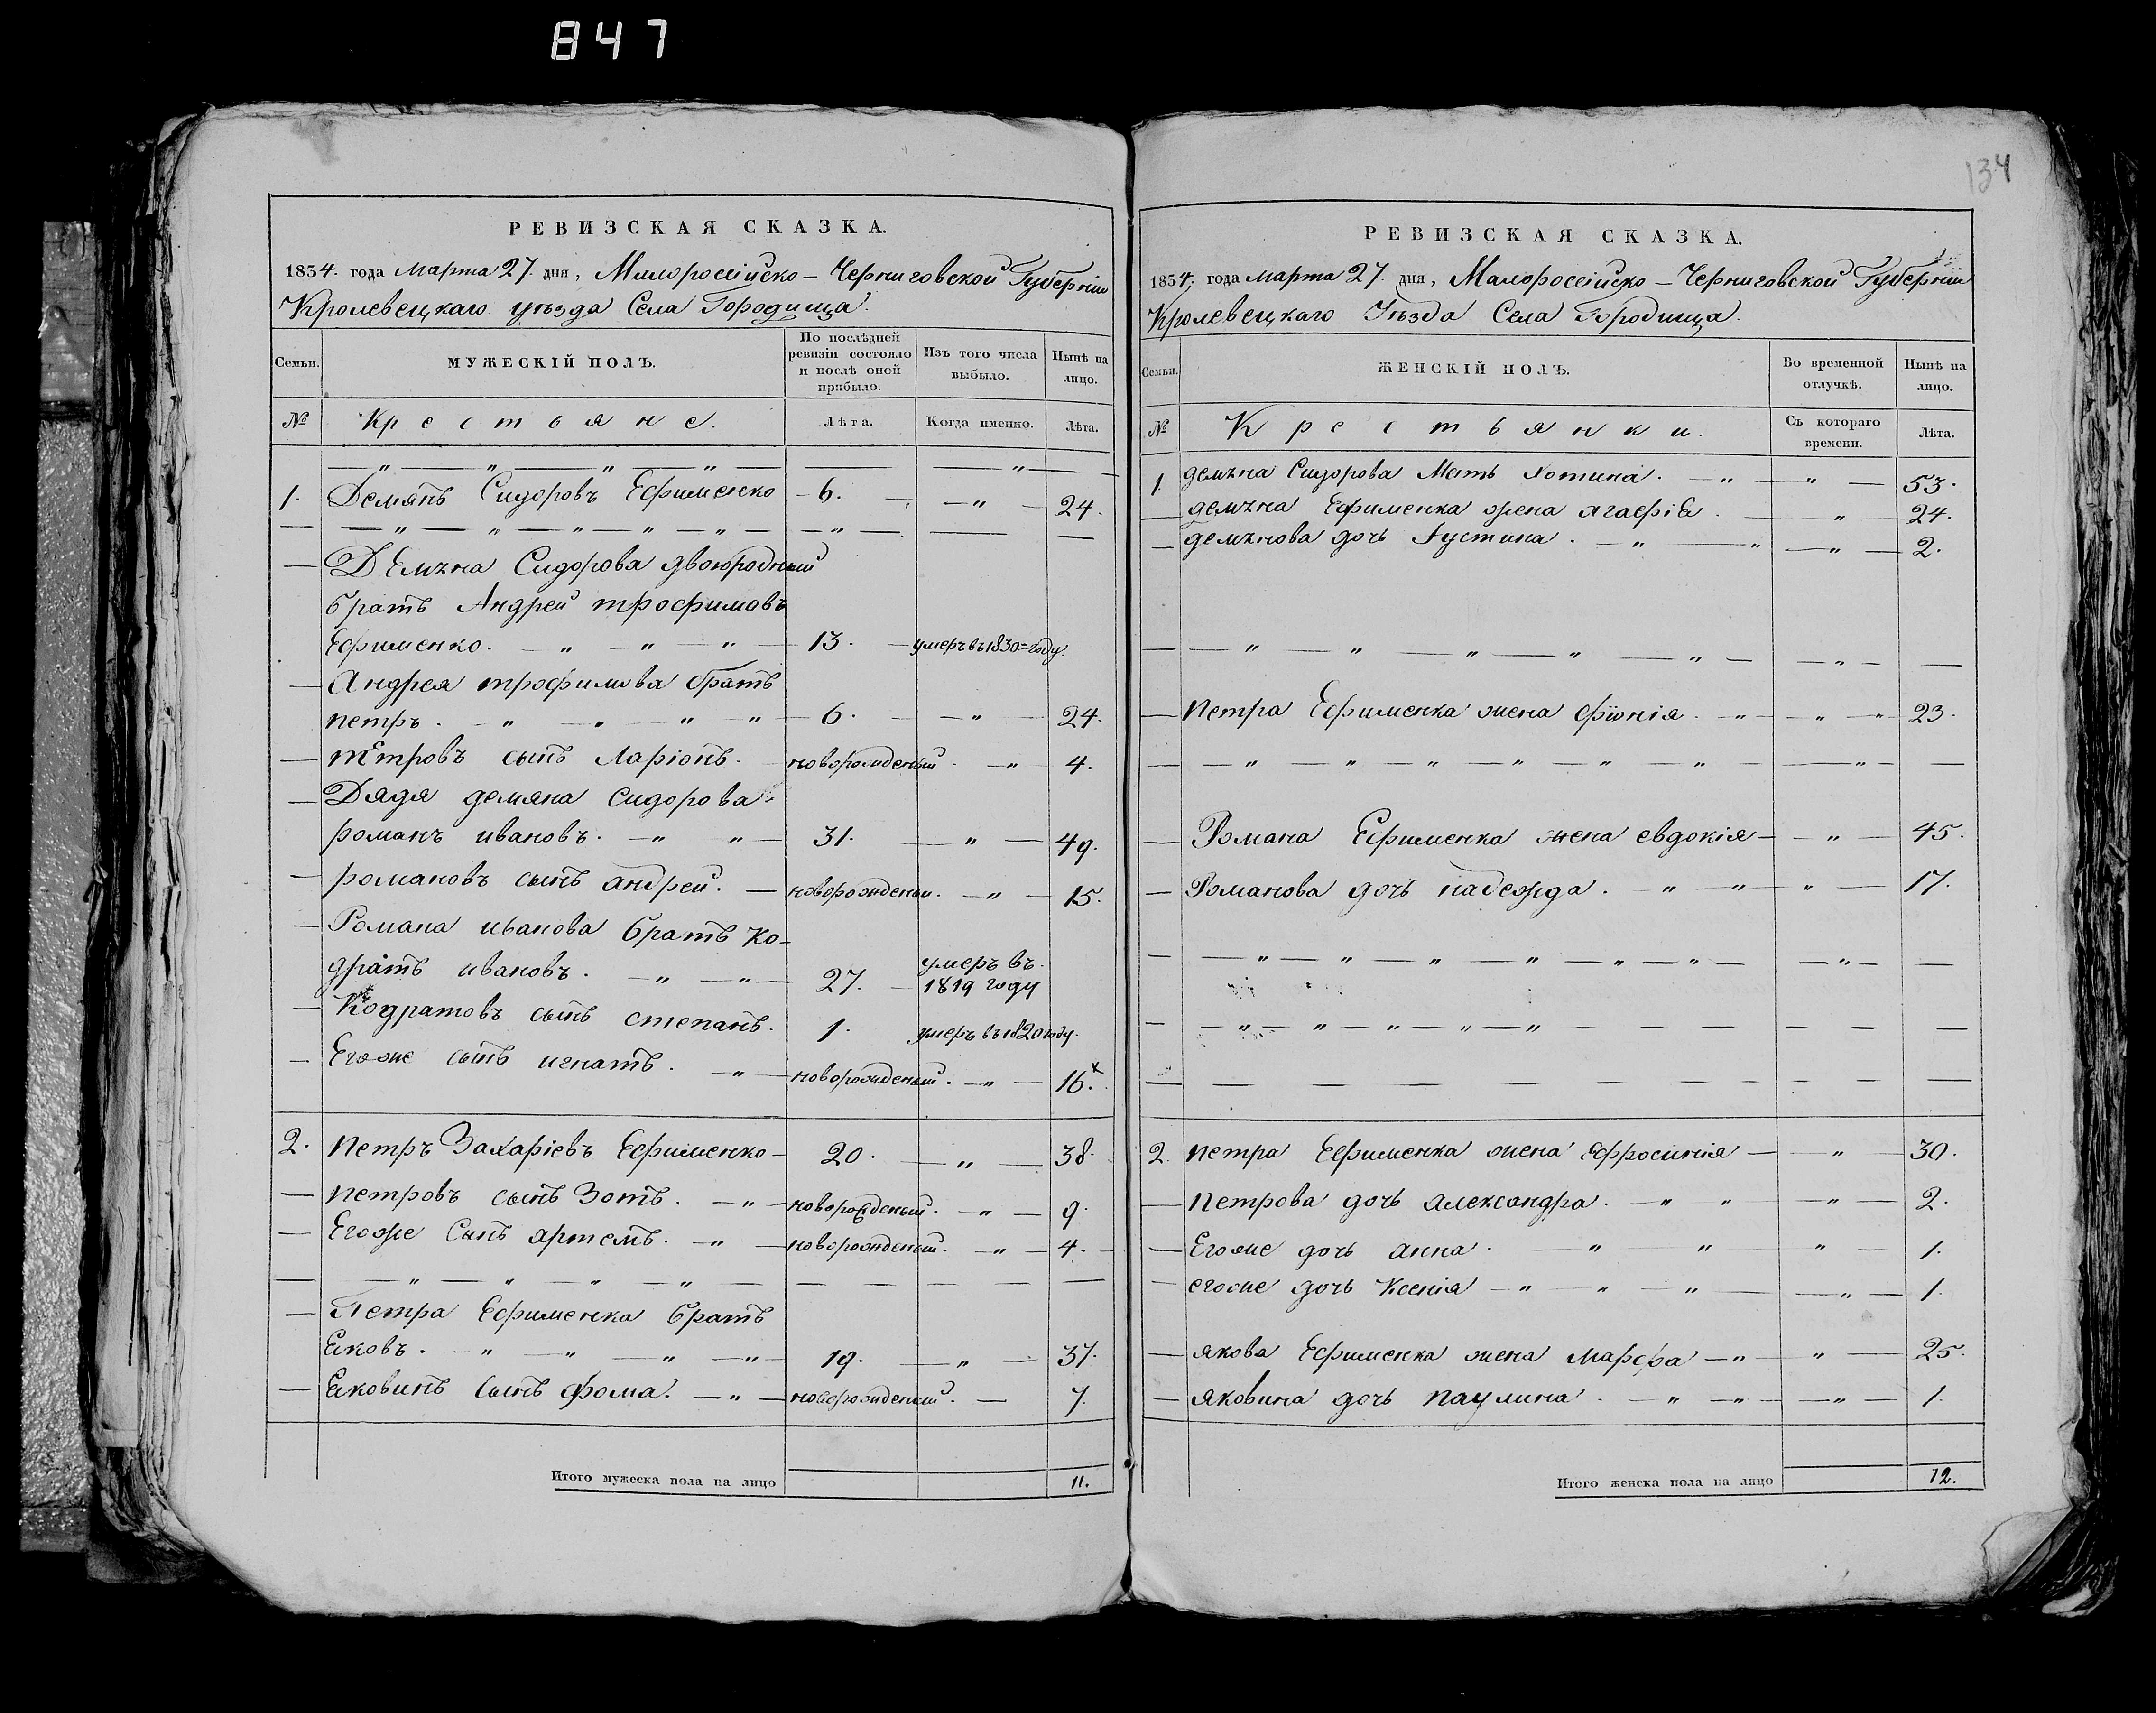 847
134
РЕВИЗСКАЯ СКАЗКА.
1834. года Марта 27. дня, Малороссійско – Черниговской Губерніи
Кролевецкаго уѣзда Села Городища.
Семьи. МУЖЕСКІЙ ПОЛЪ. По послѣдней ревизіи состояло и послѣ оной прибыло. Изъ того числа выбыло. Нынѣ на лицо.
№ Крестьяне. Лѣта. Когда именно. Лѣта.
— „ — „ — „ — „ — — — „ —
1. Демянъ Сидоровъ Ефименко — 6. — „ — 24.
— — „ — „ — „ — „ — „ — — „ — — —
— Демѧна Сидорова двоюродный
братъ Андрей трофимовъ
Ефименко. — „ — „ — „ — 13. — умеръ въ 1830 = году.
— Андрея трофимова братъ
петръ. — „ — „ — „ — „ — 6. — „ — 24.
— петровъ сынъ Ларіонъ. новорожденый. — „ — 4.
— Дядя демяна Сидорова
романъ ивановъ. — „ — „ — 31. — „ — 49.
— романовъ сынъ андрей. — новорожденый. — „ — 15.
— Романа иванова братъ Ко-
дратъ ивановъ. — „ — „ — 27. — умеръ въ.
1819 году
— Кодратовъ сынъ степанъ. 1. умеръ въ 1820 году.
— Егоже сынъ игнатъ. — „ — новорожденый. — „ — 16. х
2. петръ Захаріевъ Ефименко — 20. — „ — 38.
— петровъ сынъ Зотъ. — „ — новорожденый. — „ — 9.
— Егоже Сынъ артемъ. — „ — новорожденый. — „ — 4.
— — „ — „ — „ — „ — — — — — —
— Петра Ефименка братъ
Ековъ. — „ — „ — „ — „ — 19. — „ — 37.
— Ековинъ сынъ фома. — „ — новорожденый. — 7.
Итого мужеска пола на лицо 11.
РЕВИЗСКАЯ СКАЗКА.
1834. года марта 27. дня, Малороссійско – Черниговской Губерніи
Кролевецкаго Уѣзда Села Городища.
Семьи. ЖЕНСКІЙ ПОЛЪ. Во временной отлучкѣ. Нынѣ на лицо.
№ Крестьянки. Съ котораго времени. Лѣта.
1. демѧна Сидорова Мать Хотина. — „ — „ — 53.
— демѧна Ефименка жена агафія. — „ — 24.
— демѧнова дочь Іустина. — „ — „ — „ — 2.
— — „ — „ — „ — „ — „ — — „ — —
— Петра Ефименка жена фіонія. — „ — „ — „ — 23.
— — „ — „ — „ — „ — „ — „ — — „ — —
— Романа Ефименка жена евдокія — „ — 45.
— Романова дочь надежда. — „ — „ — „ — 17.
— — „ — „ — „ — „ — „ — „ — — „ — —
— — „ — „ — „ — „ — „ — — — — —
— — — — — — — — — —
2. петра Ефименка жена Ефросинія — „ — 30.
— Петрова дочь александра. — „ „ — „ — 2.
— Егоже дочь анна. „ „ „ 1.
— егоже дочь Ксенія — „ — „ — „ — — „ — 1.
— якова Ефименка жена Марфа — „ — „ — 25.
— яковина дочь паулина. — „ — „ — „ — 1.
Итого женска пола на лицо 12.